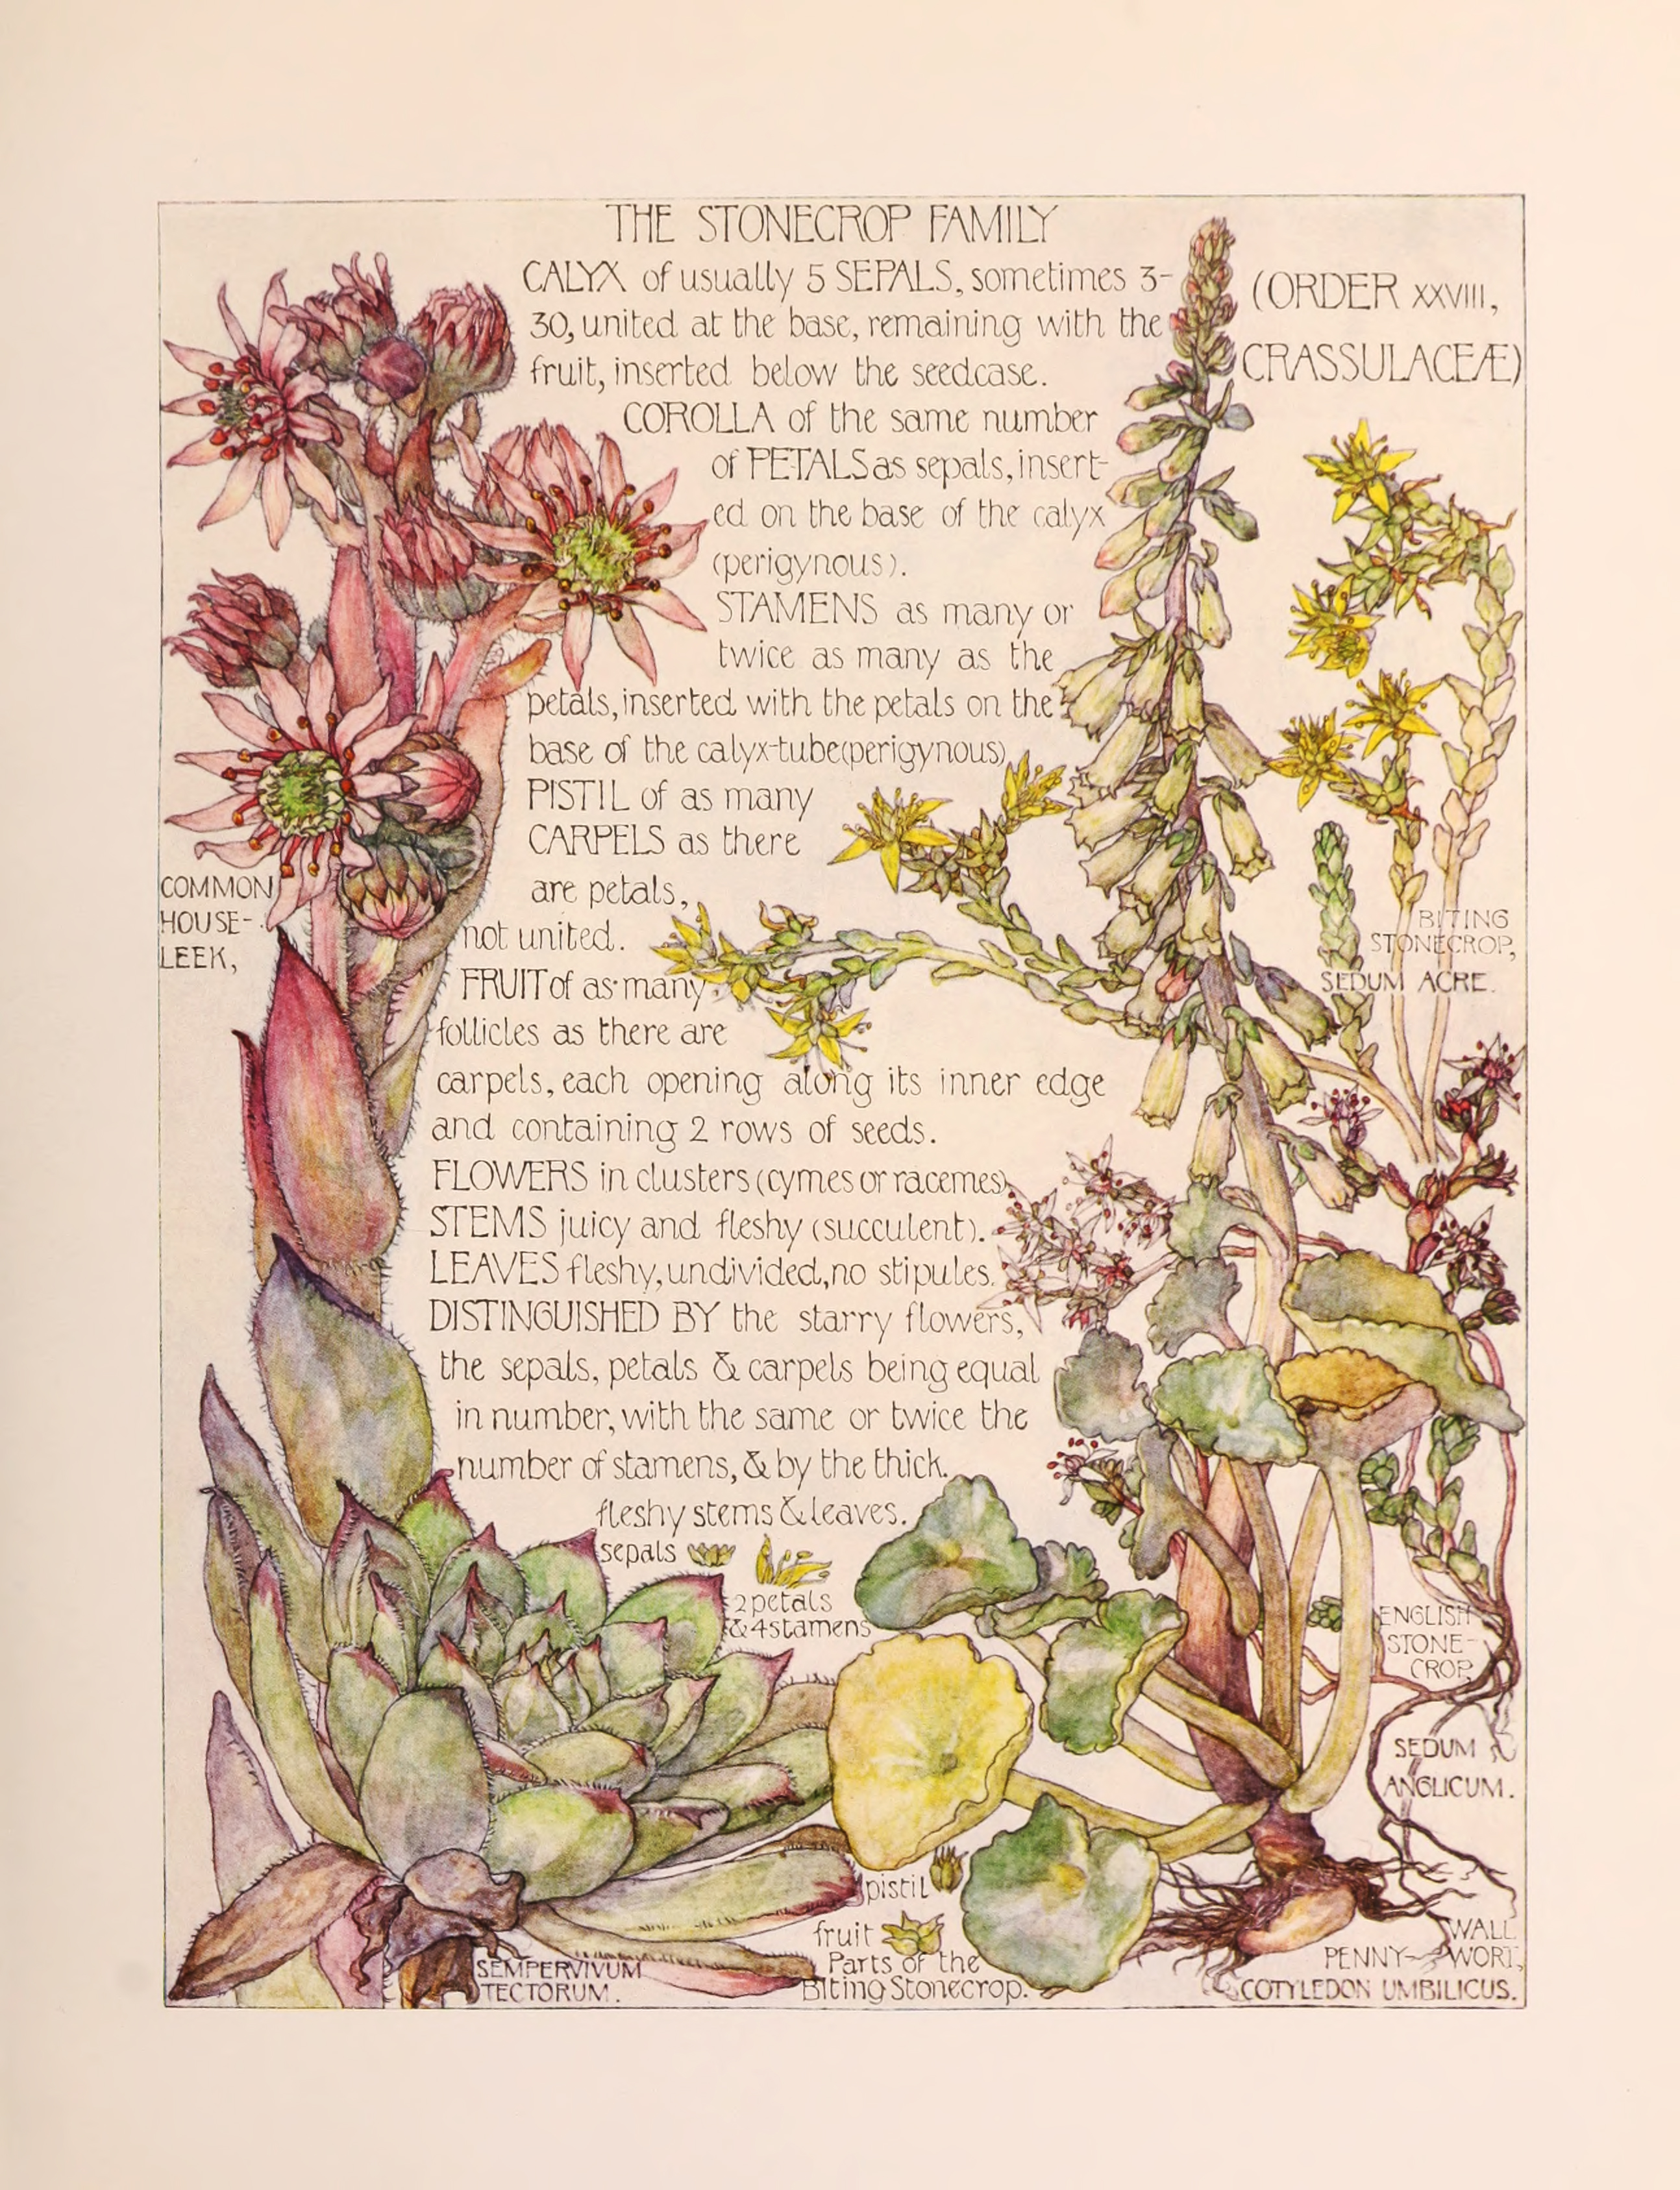 THE STONECROP FAMILY
CALYX of usually 5 SEPALS, sometimes 3-
30, united at the base, remaining with the
fruit, inserted below the seedcase.
(ORDER XXVIII,
CRASSULACEÆ)
COROLLA of the same number
of PETALS as sepals, insert-
ed on the base of the calyx
(perigynous).
STAMENS as many or
twice as many as the
petals, inserted with the petals on the
base of the calyx-tube (perigynous)
PISTIL of as many
CARPELS as there
are petals,
not united.
FRUIT of as many
follicles as there are
carpels, each opening along its inner edge
and containing 2 rows of seeds.
FLOWERS in clusters (cymes or racemes)
STEMS juicy and fleshy (succulent).
LEAVES fleshy, undivided, no stipules.
DISTINGUISHED BY the starry flowers,
the sepals, petals & carpels being equal
in number, with the same or twice the
number of stamens, & by the thick.
fleshy stems & leaves.
COMMON
HOUSE-
LEEK,
SEMPERVIVUM
TECTORUM.
BITING
STONECROP,
SEDUM ACRE.
sepals
2 petals
& 4 stamens
pistil
fruit
Parts of the
Biting Stonecrop.
ENGLISH
STONE-
CROP,
SEDUM
ANGLICUM.
WALL
PENNY-WORT,
COTYLEDON UMBILICUS.